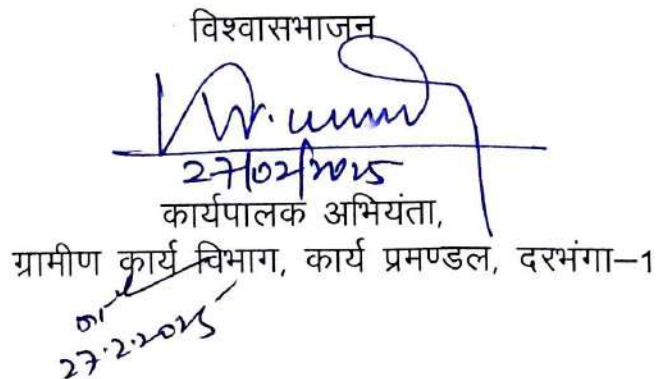 विश्वासभाजन
27/02/2025
कार्यपालक अभियंता,
ग्रामीण कार्य विभाग, कार्य प्रमण्डल, दरभंगा–1
27.2.2025